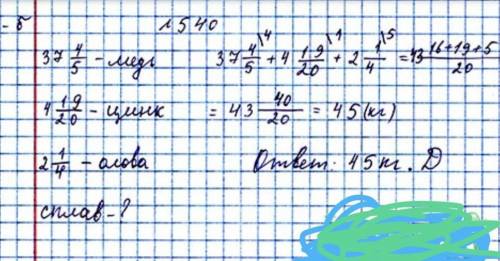 - б
№ 540
37 4/5 - медь 37 4/5 \4 + 4 19/20 \1 + 2 1/4 \5 = 43 16+19+5/20
4 19/20 - цинк = 43 40/20 = 45 (кг)
2 1/4 - олова Ответ: 45 кг. D
сплав - ?